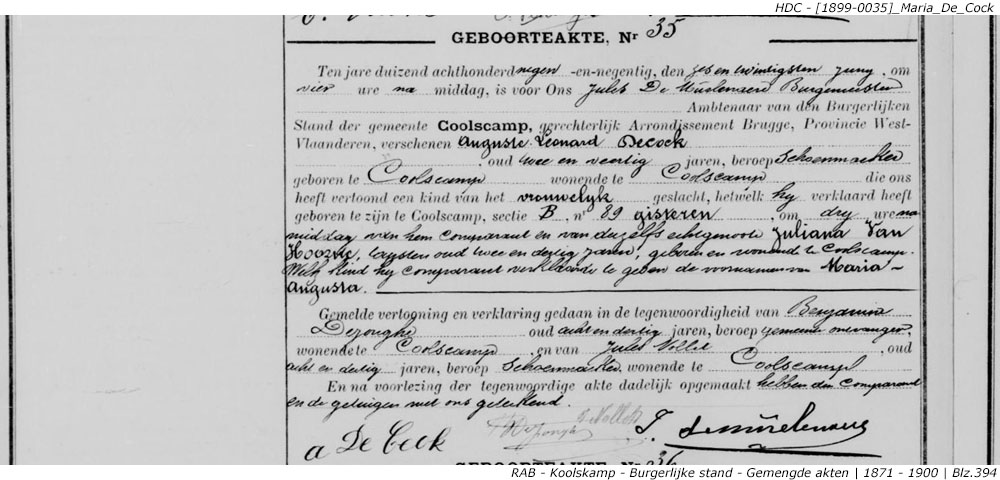 HDC - [1899-0035]_Maria_De_Cock
GEBOORTEAKTE, Nr 35
Ten jare duizend achthonderd negen -en-negentig, den zes en twintigsten juny, om
vier ure na middag, is voor Ons Jules De Muelenaere Burgemeester
Ambtenaar van den Burgerlijken
Stand der gemeente Coolscamp, gerechterlijk Arrondissement Brugge, Provincie West-
Vlaanderen, verschenen Auguste Leonard Decock
, oud twee en veertig jaren, beroep Schoenmaeker
geboren te Coolscamp wonende te Coolscamp die ons
heeft vertoond een kind van het vrouwelyk geslacht, hetwelk hy verklaard heeft
geboren te zijn te Coolscamp, sectie B, nr 89 gisteren, om dry ure na
middag van hem comparant en van dezelfs echtgenoote Juliana Van
Hoorne, oud twee en dertig jaren, geboren en wonend te Coolscamp.
Welk kind hy comparant verklaarde te geven de voornamen van Maria-
Augusta.
Gemelde vertooning en verklaring gedaan in de tegenwoordigheid van Benjamin
Dejonghe oud acht en dertig jaren, beroep gemeente ontvanger,
wonende te Coolscamp en van Jules Nollet, oud
acht en dertig jaren, beroep Schoenmaeker, wonende te Coolscamp
En na voorlezing der tegenwoordige akte dadelijk opgemaakt hebben den Comparant
en de getuigen met ons geteekend.
A De Cock B Dejonghe J Nollet J. Demuelenaere
GEBOORTEAKTE, Nr 36
RAB - Koolskamp - Burgerlijke stand - Gemengde akten | 1871 - 1900 | Blz.394